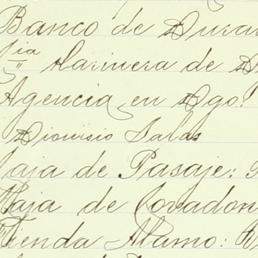 Banco de Duran
Cia Harinera de D
Agencia en Dgo.
Dionisio Salas
aja de Pasaje:
Caja de Covadon
Tienda Alamo: